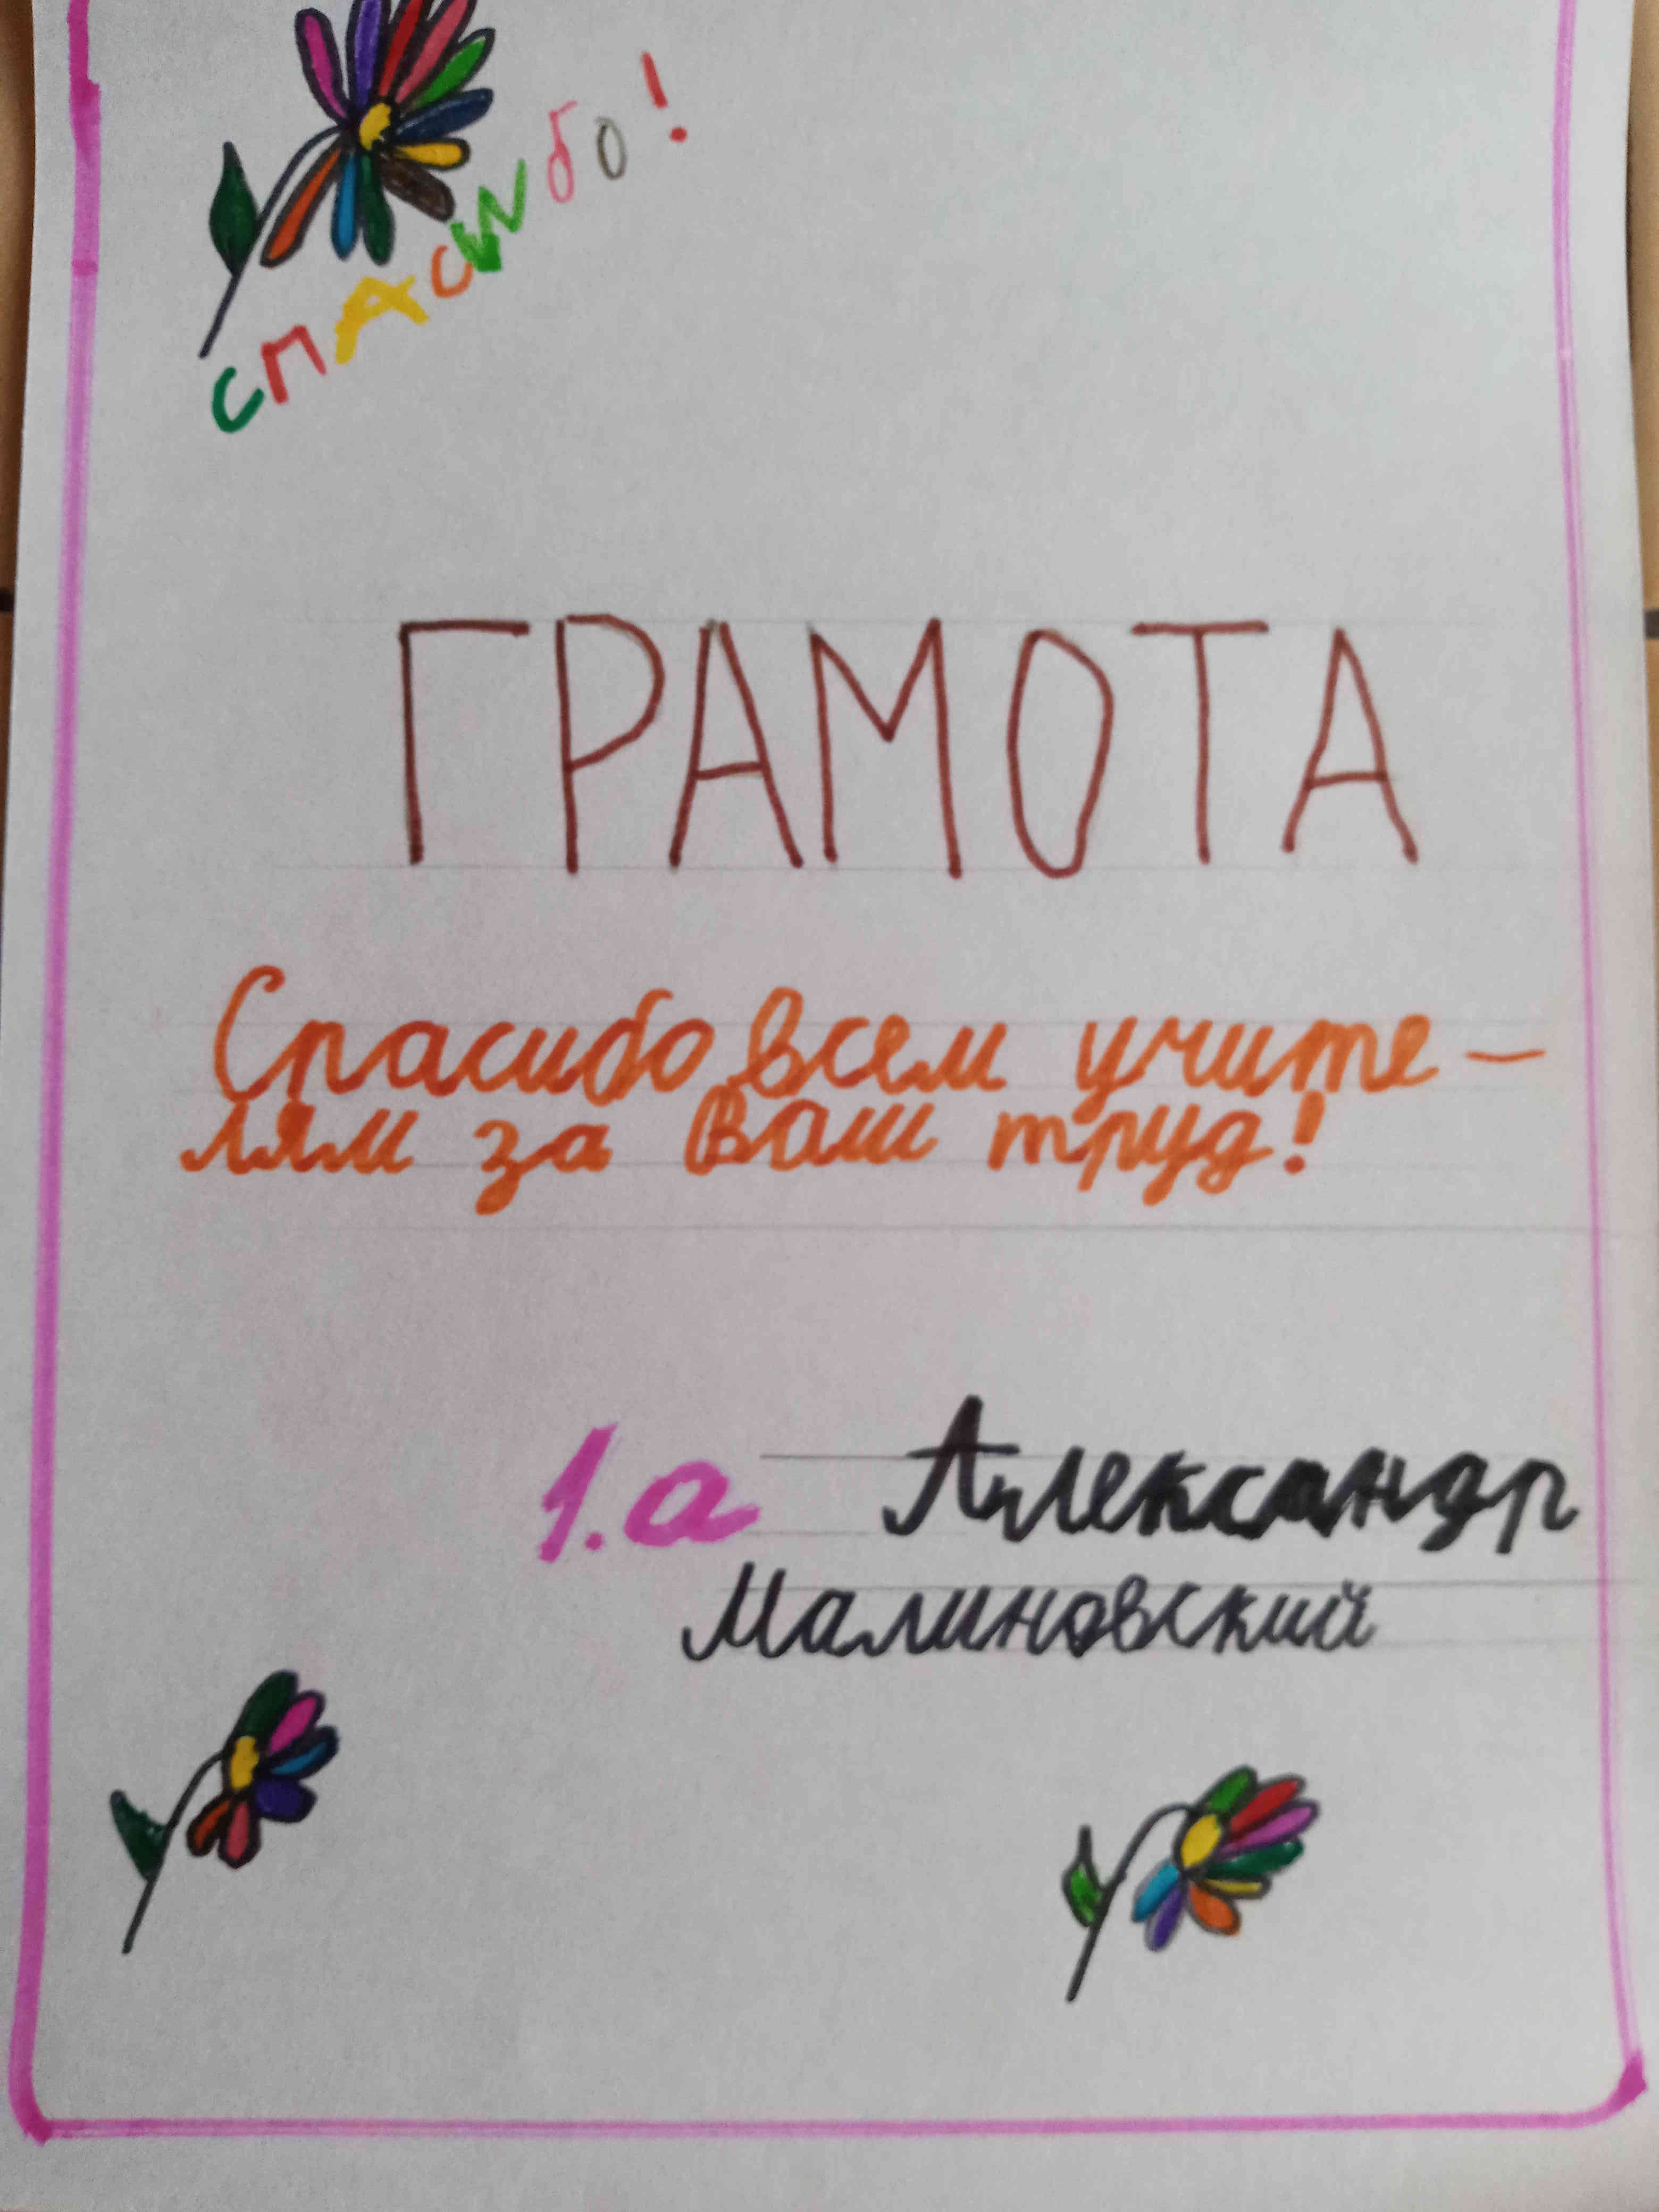 спАсибо!
ГРАМОТА
Спасибо всем учите-
лям за Ваш труд!
1.а Александр
Малиновский